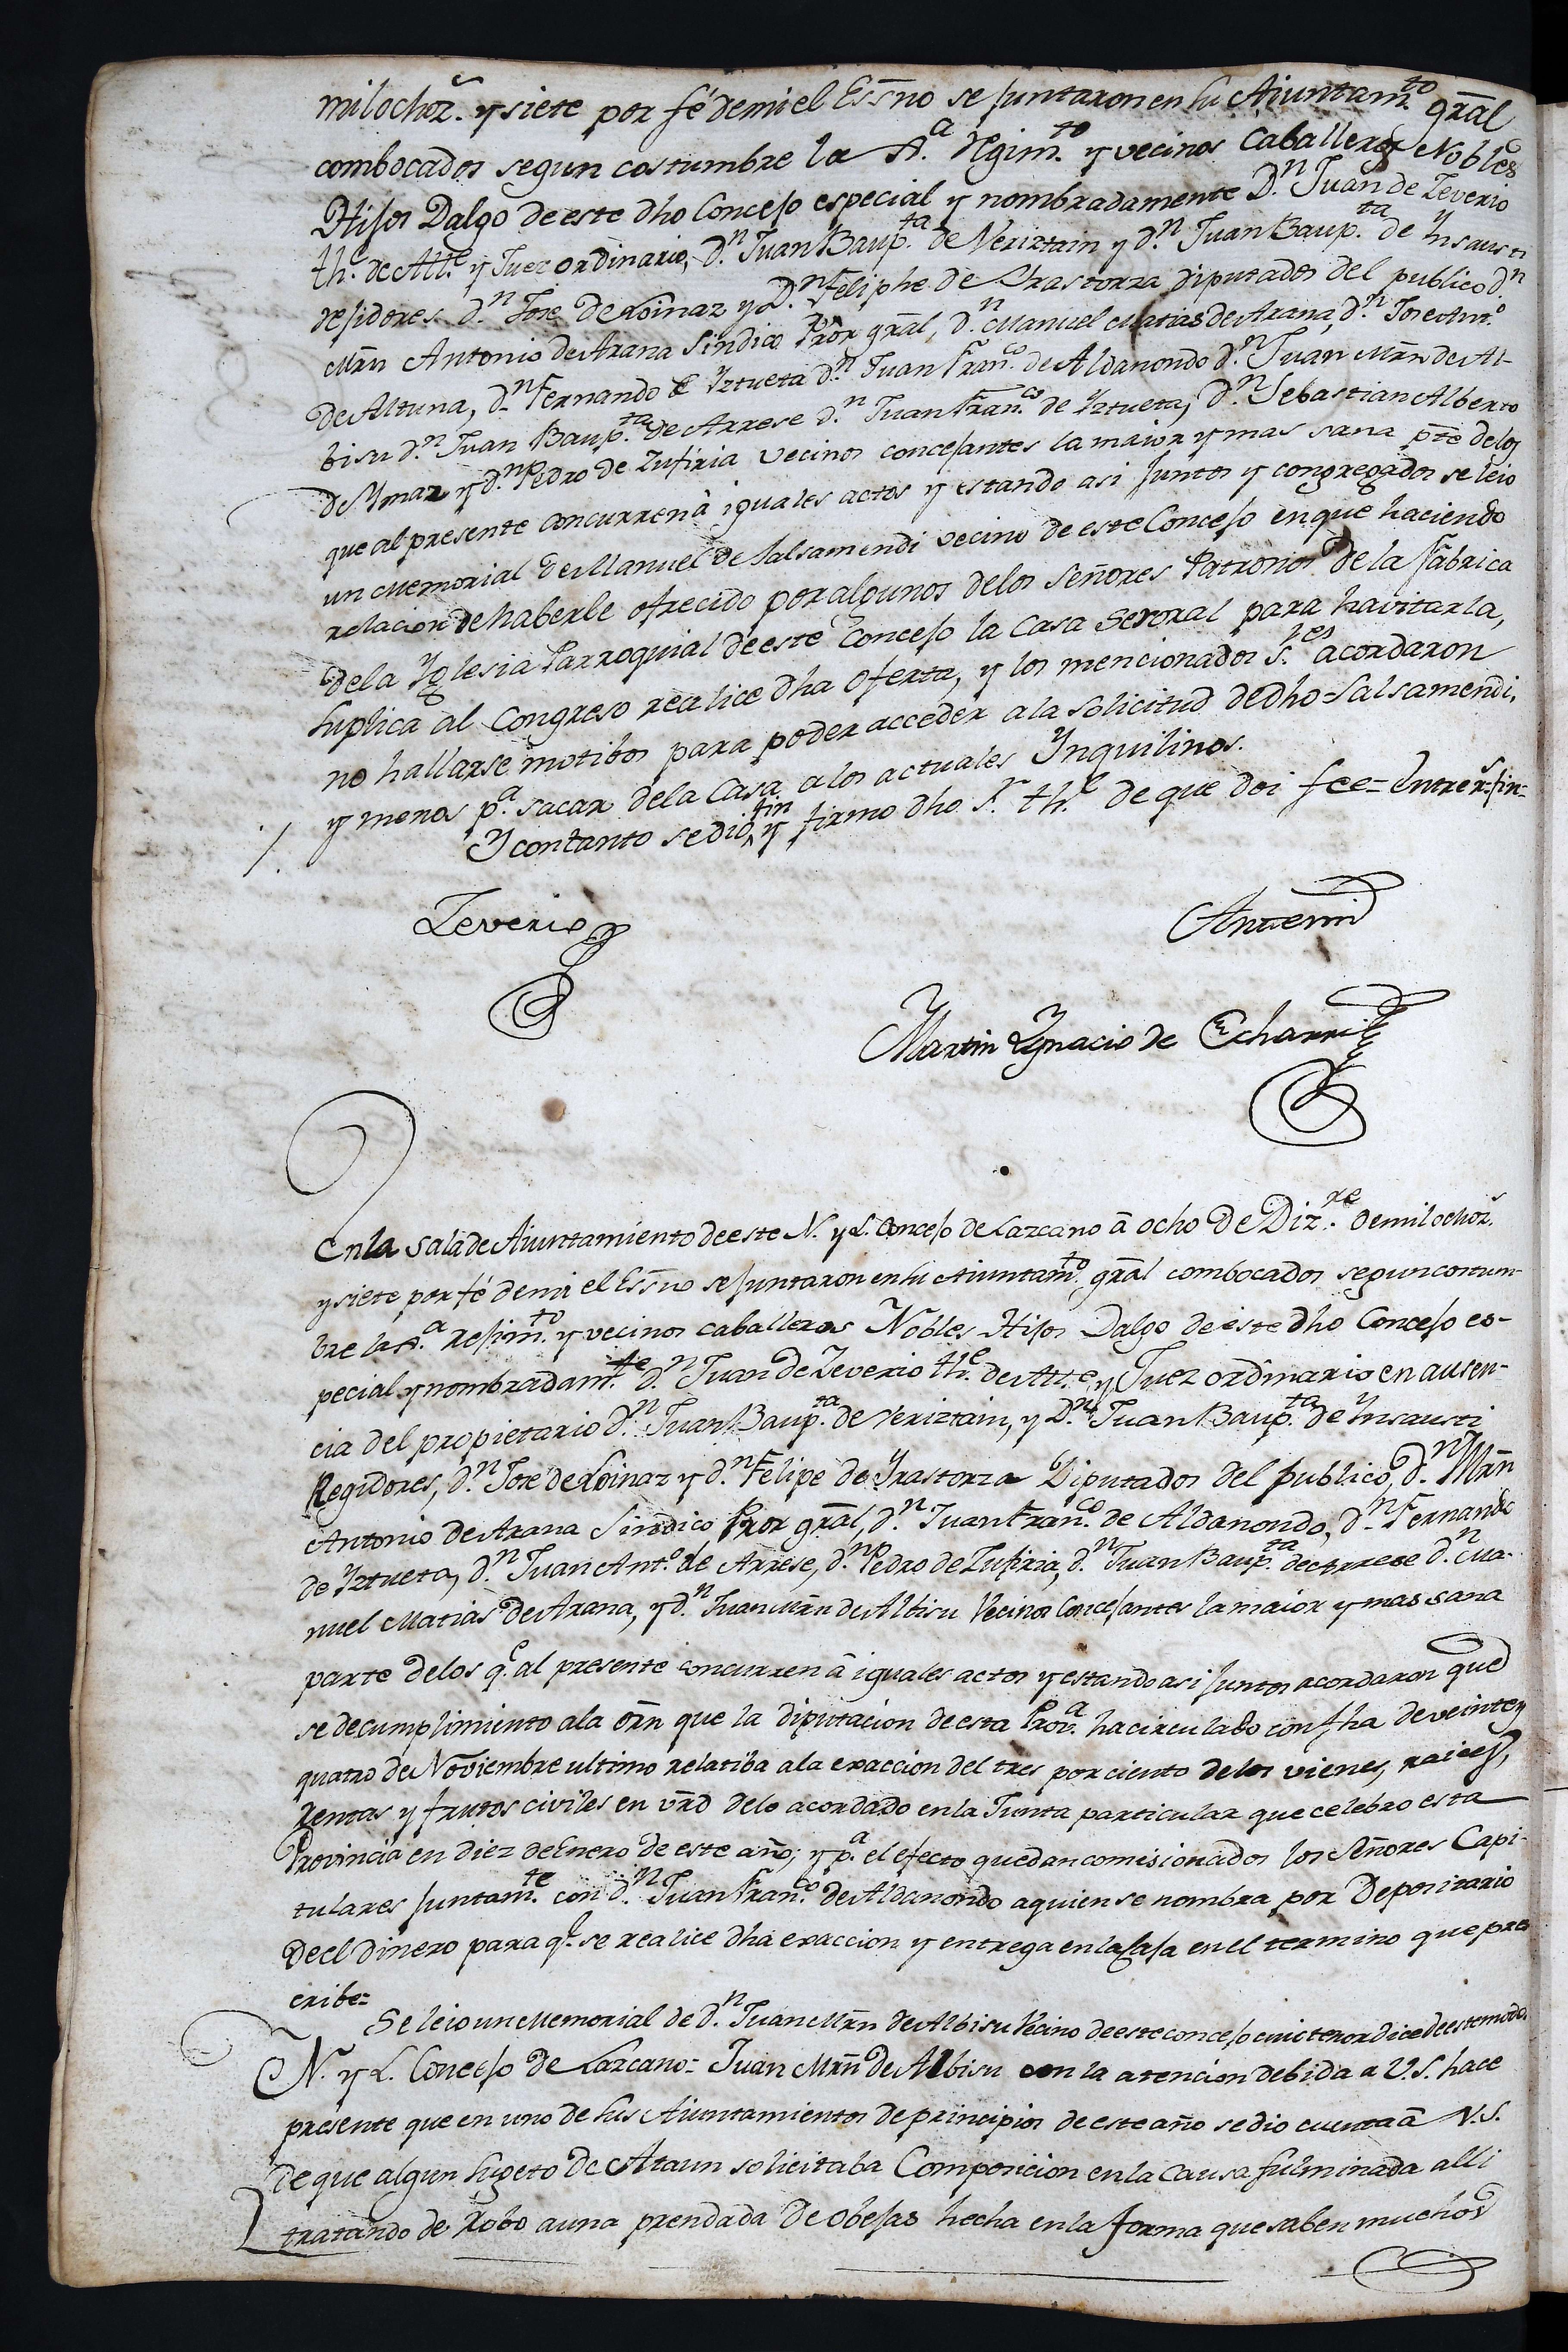 milochoz.s y siete por fé de mi el Essno se juntaron en su Aiuntam.to gral
combocados segun costumbre la A.a Rgim.to y vecinos Caballeros Nobles
Hijos Dalgo de este dho Concejo especial y nombradamente D.n Juan de Zeverio
th.e de All.e y Juez ordinario, D.n Juan Baup.ta de Veriztain y d.n Juan Baup.ta de Ynsausti
rejidores d.n Jose de Loinaz y D.n Feliphe de Yrastorza diputados del publico d.n
Mrn Antonio de Arana Sindico Pror gral, d.n Manuel Matias de Arana, d.n Jose Ant.o
de Altuna, d.n Fernando de Yztueta d.n Juan Fran.co de Aldanondo d.n Juan Mrn de Al-
bisu d.n Juan Baup.ta de Arrese d.n Juan Fran.co de Yztueta, D.n Sebastian Alberto
de Ymaz y d.n Pedro de Zufiria vecinos concejantes la maior y mas sana pte de los
que al presente concurren à iguales actos y estando asi juntos y congregados se leio
un Memorial de Manuel de Salsamendi vecino de este Concejo en que haciendo
relacion de haberle ofrecido por algunos de los Señores Patronos de la Fábrica
de la Yglesia Parroquial de este Concejo la Casa Seroral para havitarla,
suplica al Congreso realice dha oferta, y los mencionados S.res acordaron
no hallarse motibos para poder acceder a la solicitud de dho Salsamendi,
y menos p.a sacar de la Casa a los actuales Ynquilinos.
Y con tanto se dio fin y firmo dho S.r th.e de que doi fee = Entre r.s fin =
Zeverio
Antemi
Martin Ygnacio de Echarri
En la sala de Aiuntamiento de este N. y L. Concejo de Lazcano â ocho de Diz.re de mil ochoz.s
y siete por fé de mi el Essno se juntaron en su Aiuntam.to gral combocados segun costum-
bre la A.a Rejim.to y vecinos caballeros Nobles Hijos Dalgo de este dho Concejo es-
pecial y nombradam.te d.n Juan de Zeverio th.e de All.e y Juez ordinario en ausen-
cia del propietario D.n Juan Baup.ta de Veriztain, y D.n Juan Baup.ta de Ynsausti
Regidores, d.n Jose de Loinaz y d.n Felipe de Yrastorza Diputados del publico, d.n Mrn
Antonio de Arana Sindico Pror gral, d.n Juan Fran.co de Aldanondo, d.n Fernando
de Yztueta, d.n Juan Ant.o de Arrese, d.n Pedro de Zufiria, d.n Juan Baup.ta de Arrese d.n Ma-
nuel Matias de Arana, y d.n Juan Mrn de Albisu Vecinos Concejantes la maior y mas sana
parte de los q.e al presente concurren â iguales actos y estando asi juntos acordaron que
se de cumplimiento a la orn que la diputacion de esta Prov.a ha circulado con fha de veinte y
quatro de Noviembre ultimo relatiba a la exaccion del tres por ciento de los vienes, raices,
Rentas y frutos civiles en vrd de lo acordado en la Junta particular que celebro esta
Provincia en diez de Enero de este año; y p.a el efecto quedan comisionados los Señores Capi-
tulares juntam.te con d.n Juan Fran.co de Aldanondo a quien se nombra por Depositario
de el dinero para q.e se realice dha exaccion y entrega en la Caja en el termino que pres
cribe =
Se leio un Memorial de d.n Juan Mrn de Albisu Vecino de este concejo cuio tenor dice de este modo.
N. y L. Concejo de Lazcano = Juan Mrn de Albisu con la atencion debida a V.S. hace
presente que en uno de sus Aiuntamientos de principios de este año se dio cuenta â V.S.
de que algun sugeto de Ataun solicitaba Composicion en la Causa fulminada alli
tratando de Robo a una prendada de obejas hecha en la forma que saben muchos